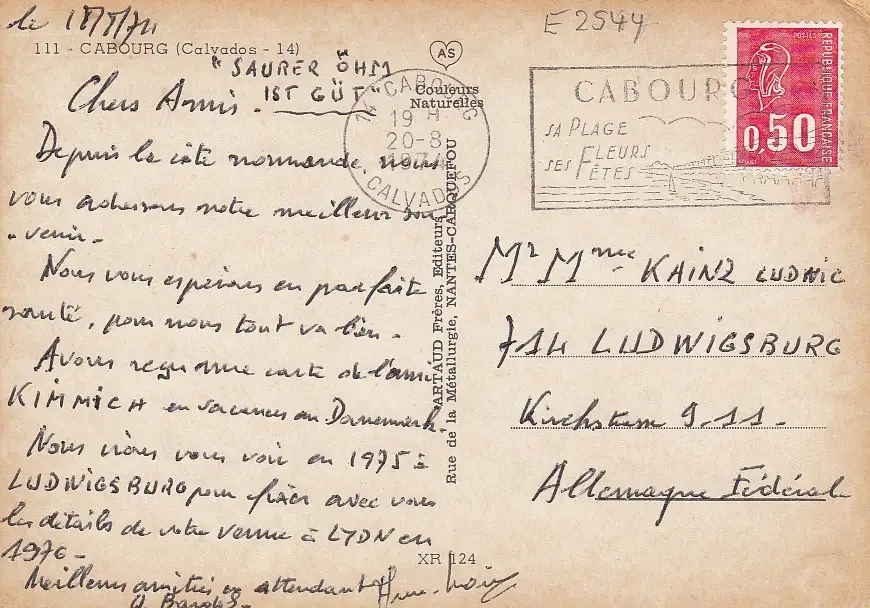 le 18/8/74
111 - CABOURG (Calvados - 14)
"SAURER ÖHM
IST GÜT"
Chers Amis.
Depuis la côte normande nous
vous adressons notre meilleur sou
-venir-
Nous vous espérons en parfaite
santé, pour nous tout va bien.
Avons reçu une carte de l'ami
KIMMICH en vacances au Danemark.
Nous irons vous voir en 1975 à
LUDWIGSBURG pour fixer avec vous
les détails de votre venue à LYON en
1976-
Meilleures amitiés en attendant
AS
Couleurs
Naturelles
ARTAUD Frères, Editeurs
Rue de la Métallurgie, NANTES-CARQUEFOU
XR 124
E 2544
14 CABOURG
19 H
20-8
1974
CALVADOS
CABOURG
SA PLAGE
SES FLEURS
FÊTES
POSTES
RÉPUBLIQUE FRANÇAISE
0,50
Mr Mme KAINZ LUDWIG
714 LUDWIGSBURG
Kirchstrasse 9-11-
Allemagne Fédérale